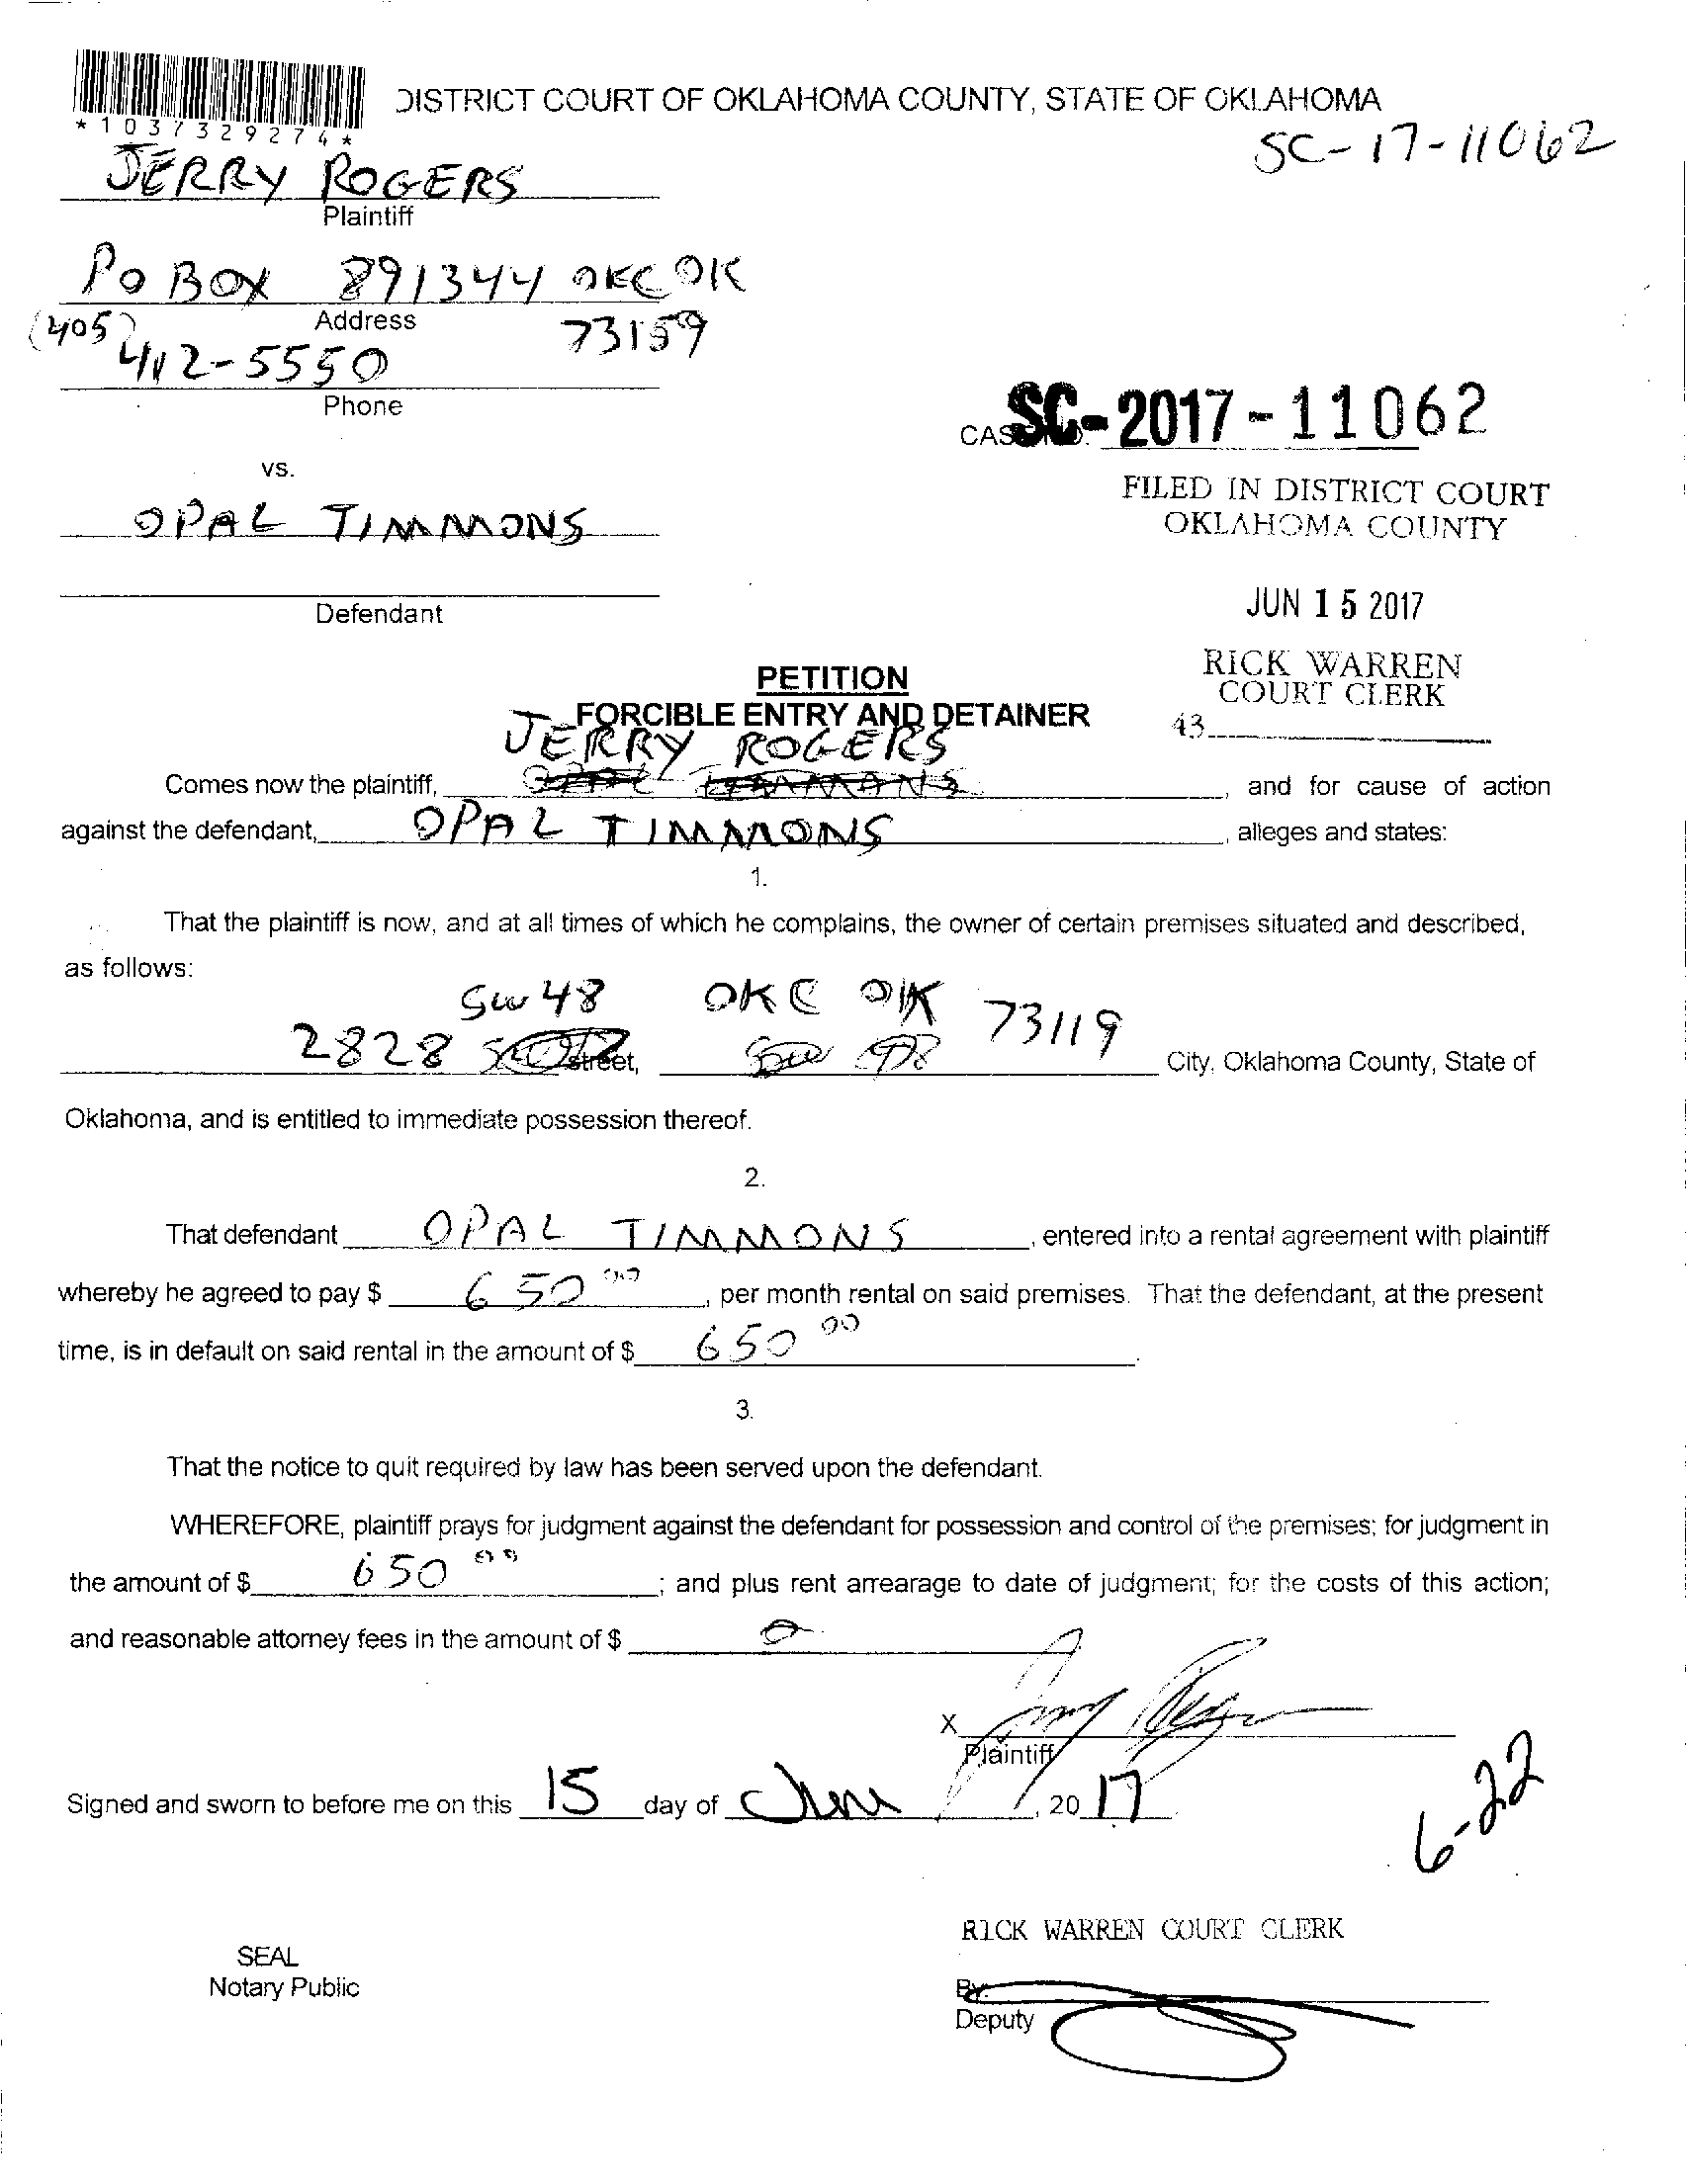 DISTRICT COURT OF OKLAHOMA COUNTY, STATE OF OKLAHOMA
*1037329274*
SC-17-11062
JERRY ROGERS
Plaintiff
PO BOX 891344 OKC OK
Address
73159
(405)
412-5550
Phone
SC-2017-11062
CASE NO.
vs.
FILED IN DISTRICT COURT
OKLAHOMA COUNTY
OPAL TIMMONS
Defendant
JUN 15 2017
RICK WARREN
COURT CLERK
43
PETITION
FORCIBLE ENTRY AND DETAINER
JERRY ROGERS
Comes now the plaintiff, OPAL TIMMONS, and for cause of action
against the defendant, OPAL TIMMONS, alleges and states:
1.
That the plaintiff is now, and at all times of which he complains, the owner of certain premises situated and described,
as follows:
SW 48 OKC OK 73119
2828 street, SW 48 City, Oklahoma County, State of
Oklahoma, and is entitled to immediate possession thereof.
2.
That defendant OPAL TIMMONS, entered into a rental agreement with plaintiff
whereby he agreed to pay $ 650 00, per month rental on said premises. That the defendant, at the present
time, is in default on said rental in the amount of $ 650 00.
3.
That the notice to quit required by law has been served upon the defendant.
WHEREFORE, plaintiff prays for judgment against the defendant for possession and control of the premises; for judgment in
the amount of $ 650 00; and plus rent arrearage to date of judgment; for the costs of this action;
and reasonable attorney fees in the amount of $ 0
X Jerry Rogers
Plaintiff
Signed and sworn to before me on this 15 day of June, 2017
6-22
RICK WARREN COURT CLERK
SEAL
Notary Public
By:
Deputy